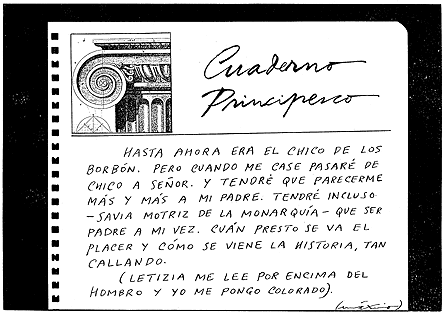 Cuaderno
Principesco
HASTA AHORA ERA EL CHICO DE LOS
BORBÓN. PERO CUANDO ME CASE PASARÉ DE
CHICO A SEÑOR. Y TENDRÉ QUE PARECERME
MÁS Y MÁS A MI PADRE. TENDRÉ INCLUSO
-SAVIA MOTRIZ DE LA MONARQUÍA- QUE SER
PADRE A MI VEZ. CUÁN PRESTO SE VA EL
PLACER Y CÓMO SE VIENE LA HISTORIA, TAN
CALLANDO.
(LETIZIA ME LEE POR ENCIMA DEL
HOMBRO Y YO ME PONGO COLORADO).
(máximo)